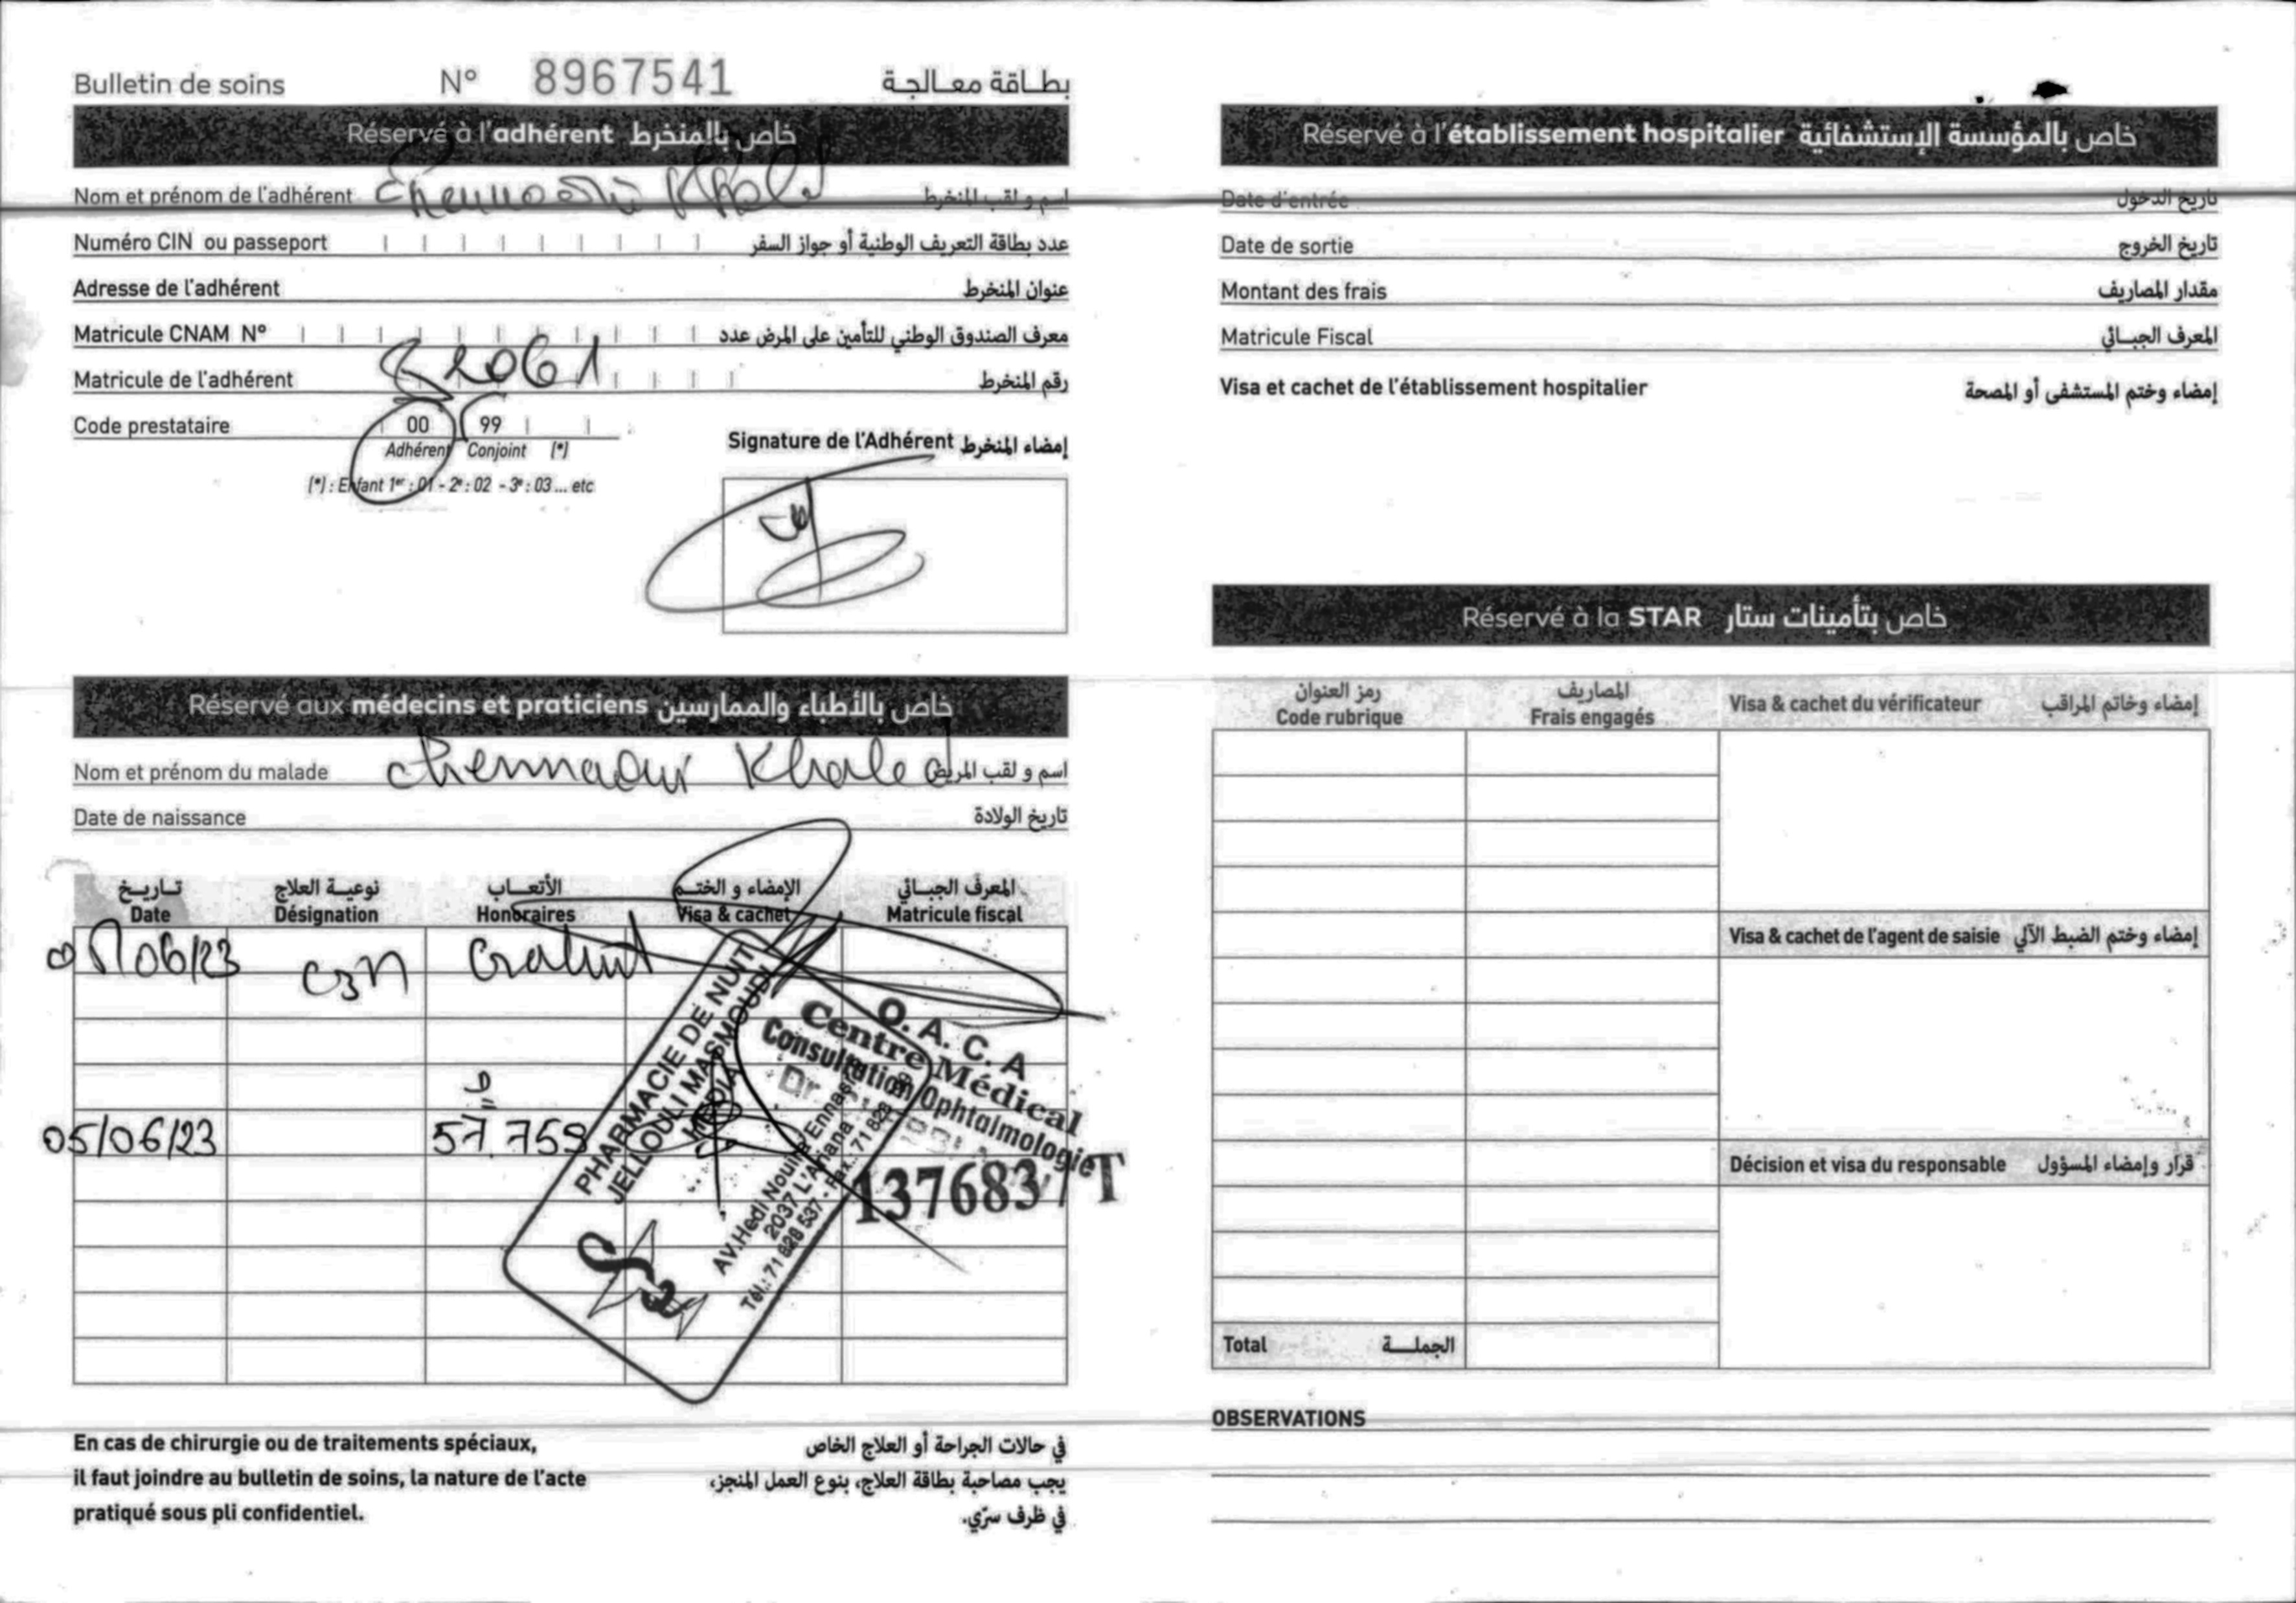 Bulletin de soins N° 8967541 بطاقة معالجة
Réservé à l'adhérent خاص بالمنخرط
Nom et prénom de l'adhérent Chennaoui Khaled اسم و لقب المنخرط
Numéro CIN ou passeport عدد بطاقة التعريف الوطنية أو جواز السفر
Adresse de l'adhérent عنوان المنخرط
Matricule CNAM N° معرف الصندوق الوطني للتأمين على المرض عدد
Matricule de l'adhérent 2061 رقم المنخرط
Code prestataire 00 99
Adhérent Conjoint (*)
(*) : Enfant 1er : 01 - 2e : 02 - 3e : 03 ... etc
Signature de l'Adhérent إمضاء المنخرط
Réservé aux médecins et praticiens خاص بالأطباء والممارسين
Nom et prénom du malade Chennaoui Khaled اسم و لقب المريض
Date de naissance تاريخ الولادة
تاريخ نوعية العلاج الأتعاب الإمضاء و الختم المعرف الجبائي
Date Désignation Honoraires Visa & cachet Matricule fiscal
05/06/23 Gratuit
05/06/23 57.759
PHARMACIE DE NUIT
JELLOULI MASMOUDI
HEDIA
AV.Hedi Nouira Ennasr
2037 L'Ariana
Tél.: 71 828 537 - Fax.: 71 828
O. A. C. A
Centre Médical
Consultation Ophtalmologie
Dr.
137683 / T
En cas de chirurgie ou de traitements spéciaux,
il faut joindre au bulletin de soins, la nature de l'acte
pratiqué sous pli confidentiel.
في حالات الجراحة أو العلاج الخاص
يجب مصاحبة بطاقة العلاج، بنوع العمل المنجز،
في ظرف سرّي.
Réservé à l'établissement hospitalier خاص بالمؤسسة الإستشفائية
Date d'entrée تاريخ الدخول
Date de sortie تاريخ الخروج
Montant des frais مقدار المصاريف
Matricule Fiscal المعرف الجبائي
Visa et cachet de l'établissement hospitalier إمضاء وختم المستشفى أو المصحة
Réservé à la STAR خاص بتأمينات ستار
رمز العنوان المصاريف
Code rubrique Frais engagés Visa & cachet du vérificateur إمضاء وخاتم المراقب
Visa & cachet de l'agent de saisie إمضاء وختم الضبط الآلي
Décision et visa du responsable قرار وإمضاء المسؤول
Total الجملة
OBSERVATIONS